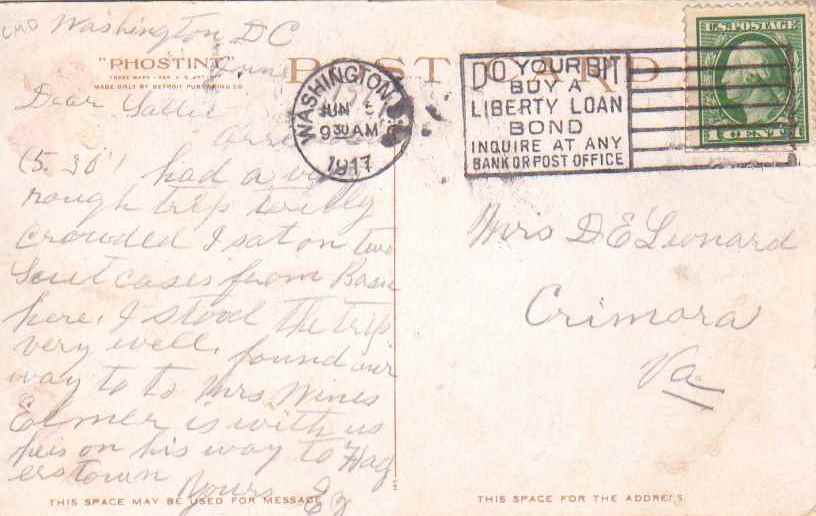 Washington DC
"PHOSTINT"
POST CARD
MADE ONLY BY DETROIT PUBLISHING CO
June
Dear Sallie
(5.30) had a very
rough trip
crowded I sat on two
Sout cases from Basic
here. I stood the trip
very well. found our
way to to Mrs Wines
Elmer is with us
heis on his way to Hag
erstown
Yours
THIS SPACE MAY BE USED FOR MESSAGE
WASHINGTON, D.C.
JUN 5
9 30 AM
1917
DO YOUR BIT
BUY A
LIBERTY LOAN
BOND
INQUIRE AT ANY
BANK OR POST OFFICE
U.S. POSTAGE
1 CENT 1
Mrs D E Leonard
Crimora
Va
THIS SPACE FOR THE ADDRESS